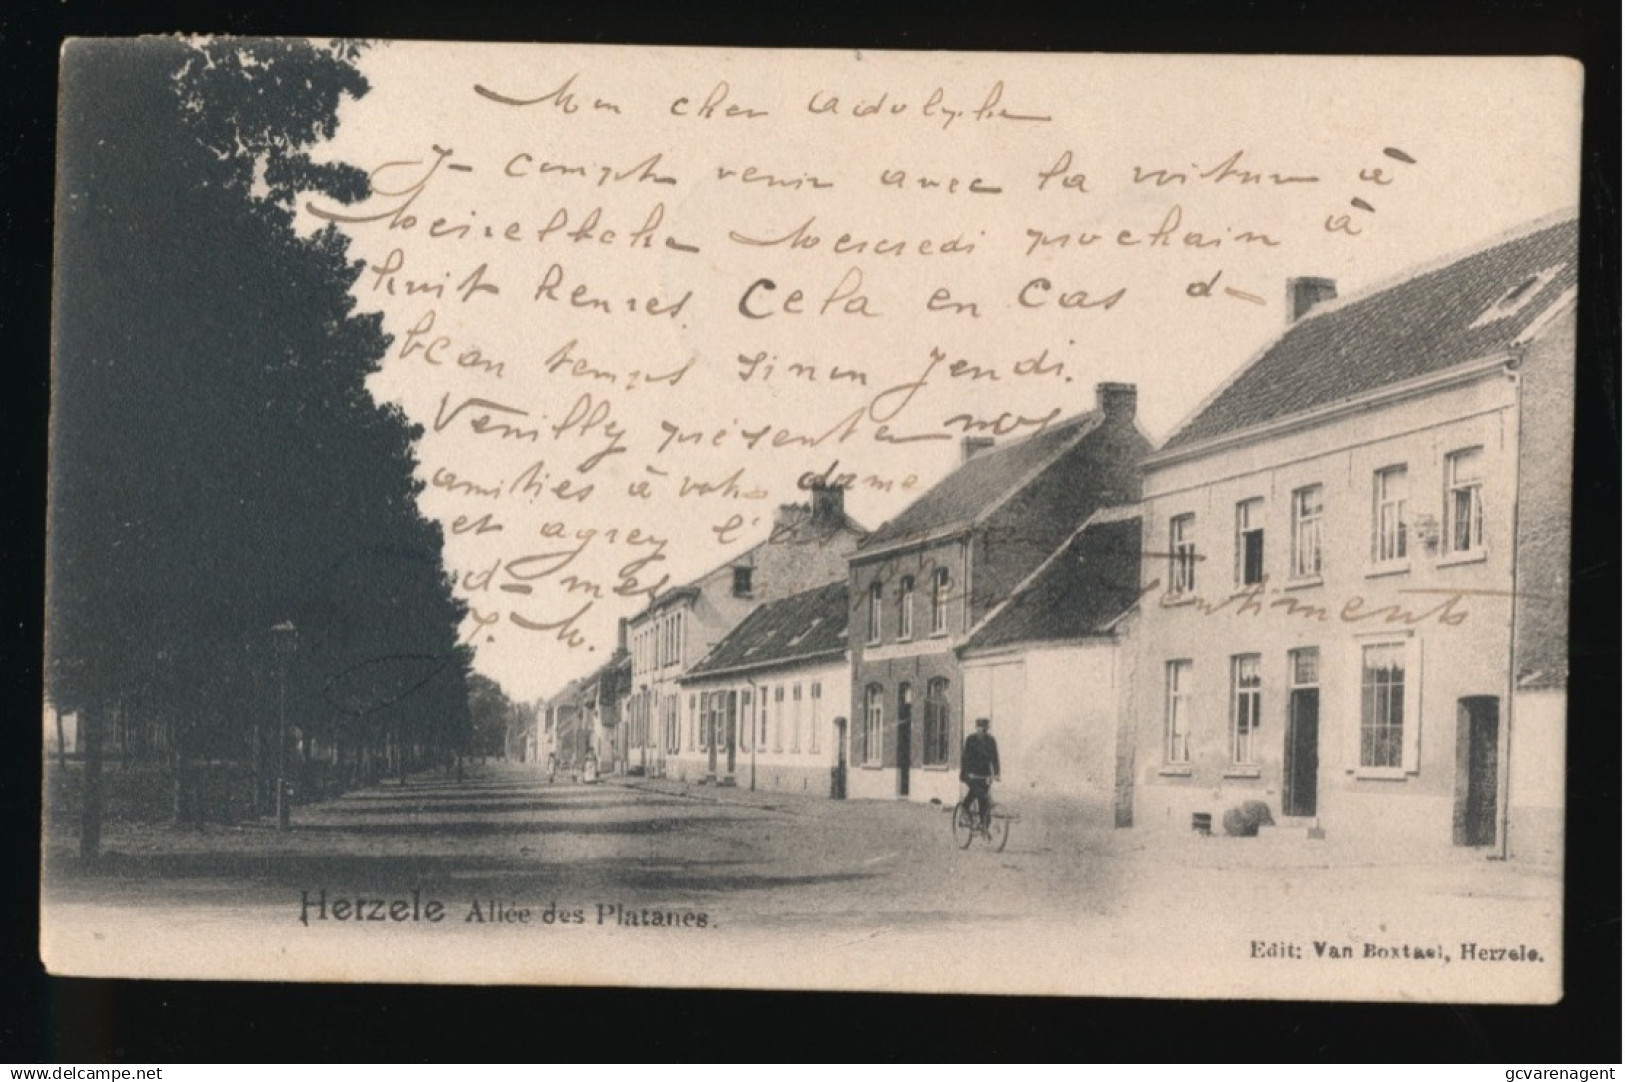 Mon cher Adolphe
Je compte venir avec la voiture à
Meirelbeke Mercredi prochain à
huit heures. Cela en cas de
beau temps sinon Jeudi.
Veuilly présenter nos
amitiés à votre dame
et agrey l'
de mes sentiments
J. M.
Herzele Allée des Platanes.
Edit: Van Boxtael, Herzele.
www.delcampe.net
gcvarenagent